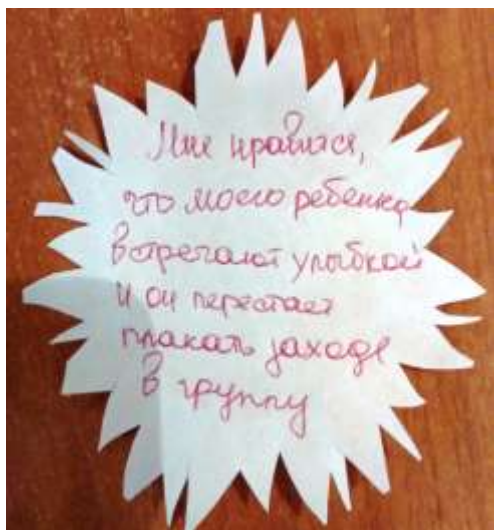 Мне нравится,
что моего ребенка
встречают улыбкой
и он перестает
плакать заходя
в группу